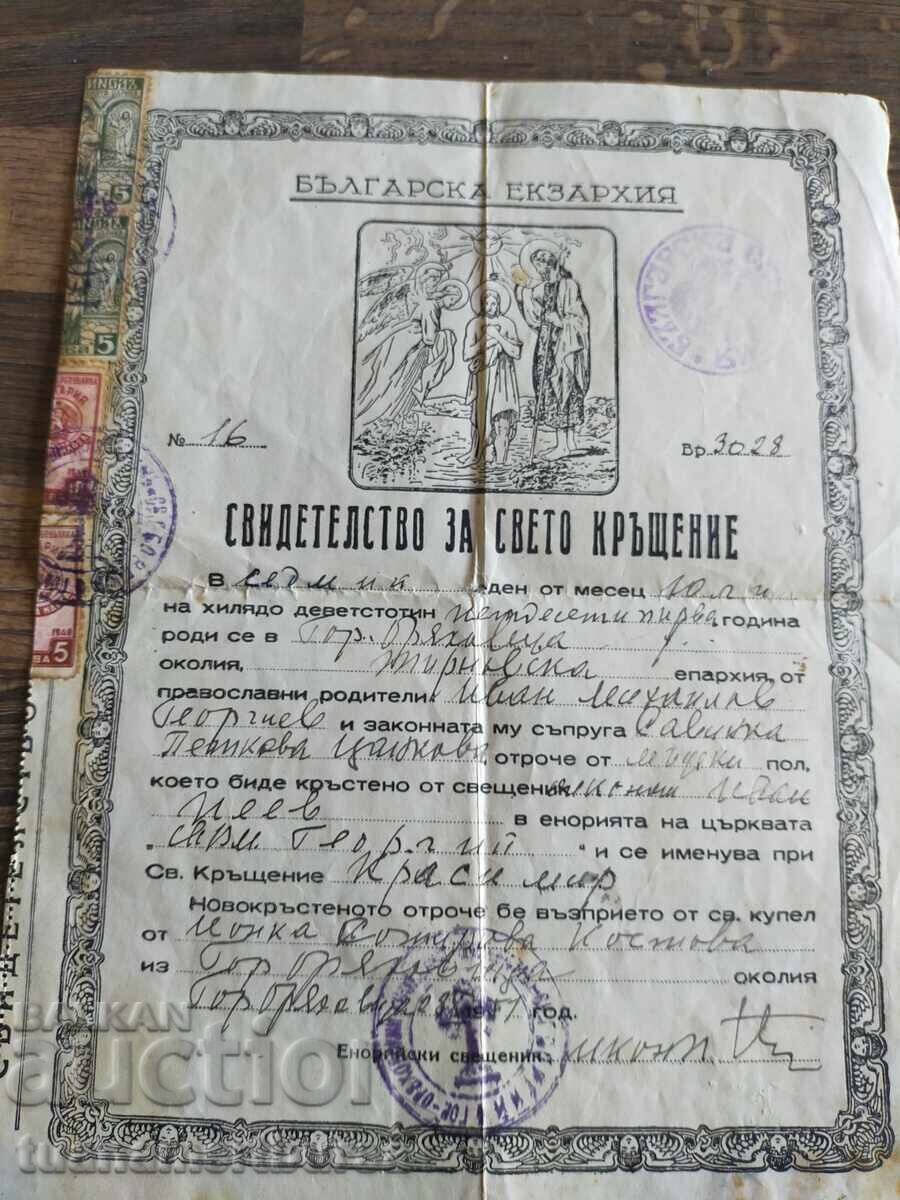 БЪЛГАРСКА ЕКЗАРХИЯ
№ 16
Вр. 3028
СВИДЕТЕЛСТВО ЗА СВЕТО КРЪЩЕНИЕ
В седмий ден от месец Юли
на хилядо деветстотин петдесет и първа година
роди се в Гор. Оряховица
околия, Търновска епархия, от
православни родители Иван Михайлов
Георгиев и законната му съпруга Савинка
Петкова Цанкова, отроче от мъжки пол,
което биде кръстено от свещеник иконом Иван
Пеев в енорията на църквата
„Свм. Георгий" и се именува при
Св. Кръщение Красимир
Новокръстеното отроче бе възприето от св. купел
от Йонка Костова
из Гор Оряховица околия
Гор Оряховица 1951 год.
Енорийски свещеник: иконом
5
5
1948
1948
ВА 5
БЪЛГАРСКА
БАЛКАН
auction